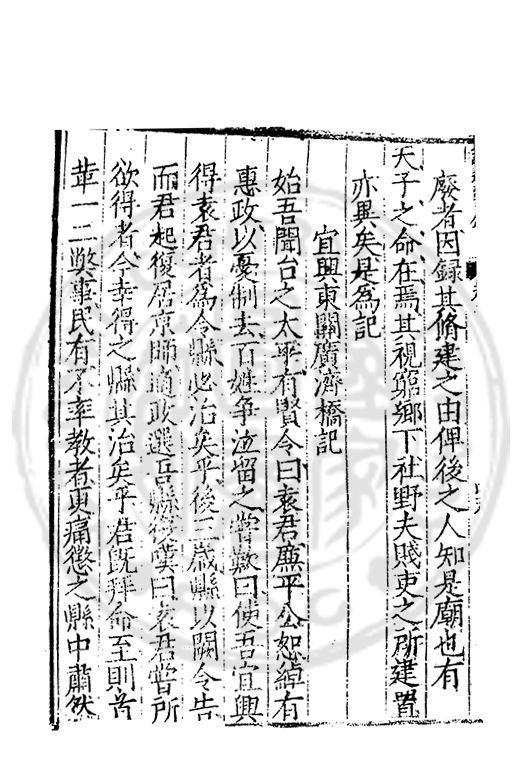 廢者因録其脩建之由俾後之人知是廟也有
天子之命在焉其視窮鄉下社野夫賤吏之所建置
亦異矣是為記
宜興東關廣濟橋記
始吾聞台之太平有賢令曰袁君廉平公恕綽有
惠政以憂制去百姓争泣留之嘗歎曰使吾宜興
得袁君者為令縣必治矣乎後三歲縣以闕令告
而君起復居京師適政選吾縣復嘆曰袁君嘗所
欲得者今幸得之縣其治矣乎君既拜命至則首
革一二獘事民有不率教者更痛懲之縣中肅然